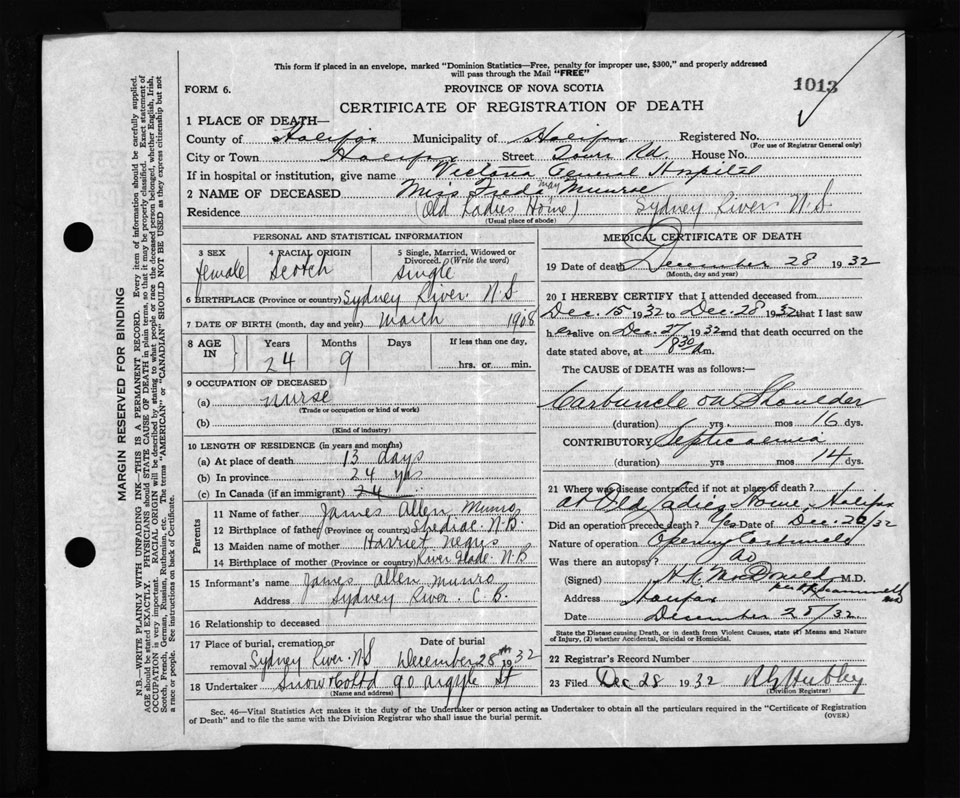 This form if placed in an envelope, marked "Dominion Statistics—Free, penalty for improper use, $300," and properly addressed
will pass through the Mail "FREE"
FORM 6.
PROVINCE OF NOVA SCOTIA
1013
CERTIFICATE OF REGISTRATION OF DEATH
1 PLACE OF DEATH—
County of Halifax Municipality of Halifax Registered No.
(For use of Registrar General only)
City or Town Halifax Street Tower Rd. House No.
If in hospital or institution, give name Victoria General Hospital
2 NAME OF DECEASED Miss Freda May Munroe
Residence (Old Ladies Home) Sydney River N.S
(Usual place of abode)
PERSONAL AND STATISTICAL INFORMATION
3 SEX female
4 RACIAL ORIGIN Scotch
5 Single, Married, Widowed or Divorced. (Write the word) single
6 BIRTHPLACE (Province or country) Sydney River. N.S
7 DATE OF BIRTH (month, day and year) March 1908
8 AGE IN Years Months Days If less than one day,
24 9 hrs. or min.
9 OCCUPATION OF DECEASED
(a) nurse
(Trade or occupation or kind of work)
(b)
(Kind of industry)
10 LENGTH OF RESIDENCE (in years and months)
(a) At place of death 13 days
(b) In province 24 yrs
(c) In Canada (if an immigrant) 24
Parents
11 Name of father James Allen Munro
12 Birthplace of father (Province or country) Shediac N.B.
13 Maiden name of mother Harriet
14 Birthplace of mother (Province or country) River Glade N.B
15 Informant's name James Allen Munro
Address Sydney River. C.B.
16 Relationship to deceased
17 Place of burial, cremation or removal Date of burial
Sydney River. N.S December 28th 1932
18 Undertaker Snow & Co Ltd 90 Argyle St
(Name and address)
MEDICAL CERTIFICATE OF DEATH
19 Date of death December 28 1932
(Month, day and year)
20 I HEREBY CERTIFY that I attended deceased from
Dec. 15 1932 to Dec. 28 1932 that I last saw
her alive on Dec. 27 1932 and that death occurred on
date stated above, at 8 30 A m.
The CAUSE of DEATH was as follows:—
Carbuncle on Shoulder
(duration) yrs. mos 16 dys.
CONTRIBUTORY Septicaemia
(duration) yrs mos 14 dys.
21 Where was disease contracted if not at place of death?
at Old Ladies Home, Halifax
Did an operation precede death? Yes Date of Dec. 26/32
Nature of operation Opening Carbuncle
Was there an autopsy? no
(Signed) H.K. McDonald M.D.
Address Halifax
Date December 28/32
State the Disease causing Death, or in death from Violent Causes, state (1) Means and Nature
of Injury, (2) whether Accidental, Suicidal or Homicidal.
22 Registrar's Record Number
23 Filed Dec 28 1932
(Division Registrar)
Sec. 46—Vital Statistics Act makes it the duty of the Undertaker or person acting as Undertaker to obtain all the particulars required in the "Certificate of Registration
of Death" and to file the same with the Division Registrar who shall issue the burial permit.
(OVER)
MARGIN RESERVED FOR BINDING
N.B.—WRITE PLAINLY WITH UNFADING INK—THIS IS A PERMANENT RECORD. Every item of information should be carefully supplied.
AGE should be stated EXACTLY. PHYSICIANS should STATE CAUSE OF DEATH in plain terms, so that it may be properly classified. Exact statement of
OCCUPATION is very important. RACIAL ORIGIN will be described by stating to what people or race the deceased person belonged, whether English, Irish,
Scotch, French, German, Russian, Ruthenian, etc. The terms "AMERICAN" or "CANADIAN" SHOULD NOT BE USED as they express citizenship but not
a race or people. See instructions on back of Certificate.